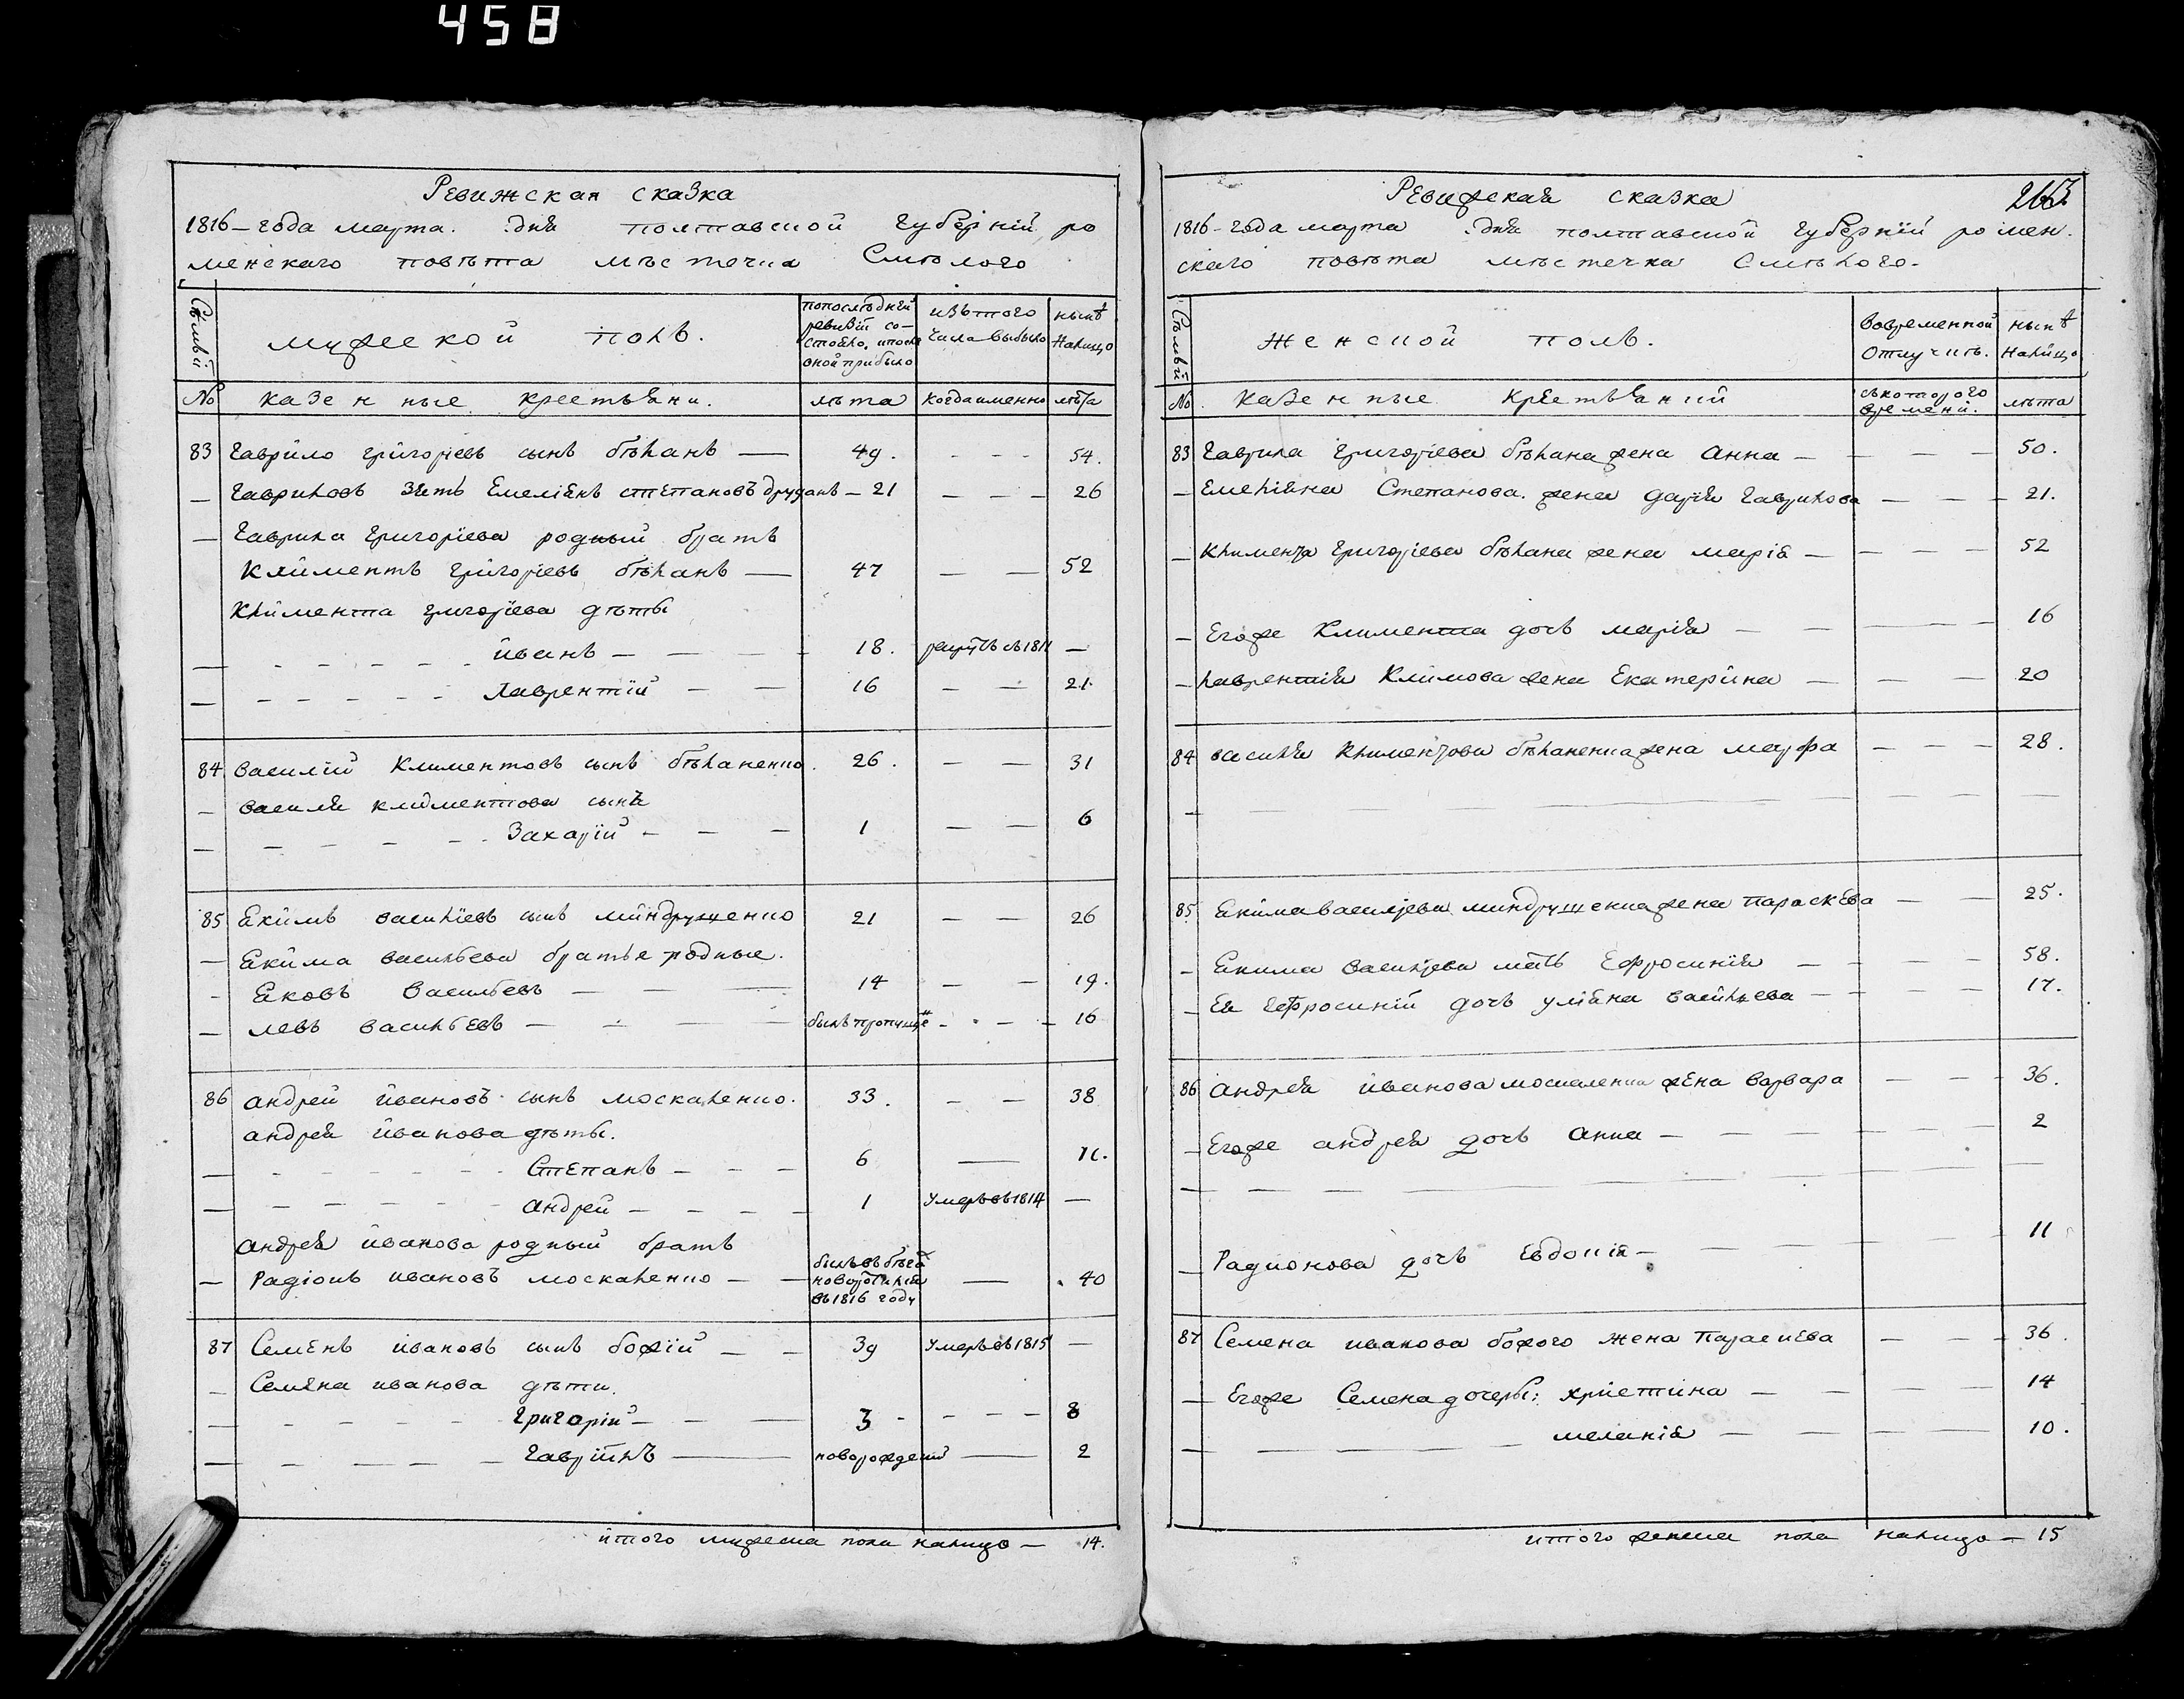 458
Ревижская сказка
1816 - года марта. дня полтавской губерній, ро
менскаго повѣта мѣстечка Смѣлого
Сѣмьй
мужеской полъ.
попослѣдней ревизіи состояло, и после оной прибыло
изътого числа выбыло
нынѣ налицо
№ казенные крестьяни.
лѣта
когда именно
лѣта
83 Гаврило григоріевъ сынъ бѣланъ — 49. - - - 54.
— Гавриловъ зять Емеліянъ степановъ - 21 — — — 26
— Гаврила григоріева родный братъ
Климентъ григоріевъ бѣланъ — 47 — — 52
Климента григоріева дѣты
— Иванъ — 18. въ 1811 —
— Лаврентій — — 16 — — 21.
84 Василій Климентовъ сынъ бѣланенко. 26. — — 31
— Василя климентова сынъ
— Захарій - — — 1 — — 6
85 Екимъ василіевъ сынъ миндрущенко 21 — — 26
— Екима васильева братья родные.
- Яковъ Васильевъ — — — 14 — — 19.
— левъ васильевъ — — — былъ пропущ - - — 16
86 андрей ивановъ сынъ москаленко. 33. — — 38
андрея иванова дѣты.
— Степанъ — — — 6 — 11.
— андрей — — — 1 умеръ въ 1814 —
андрея иванова родный братъ
— Радіонъ ивановъ москаленко — — былъ въ бѣга въ 1816 году — 40
87 Семенъ ивановъ сынъ божій — — 39 умеръ въ 1815 —
— Семена иванова дѣти.
— Григорій — — 3 - - — — 8
— Гаврійлъ — новорожденій — 2
итого мужеска пола налицо — 14.
Ревижская сказка
1816 - года марта дня полтавской губерній ромен.
скаго повѣта мѣстечка Смѣлого.
Сѣмьй
женской полъ.
вовременной отлучкѣ.
нынѣ налицо
№ казенные крестьяній
съкоторого времени.
лѣта
83 Гаврила григоріева бѣлана жена Анна — — — — 50.
— Емеліяна Степанова жена дарія Гаврилова — — — 21.
— Климента григоріева бѣлана жена марія — — — — 52
— Егоже Климента дочь марія — — — — — 16
— лаврентія Климова жена Екатерина — — — — 20
84 василя климентова бѣланенка жена марфа — — — 28.
85 Екима василіева миндрущенка жена параскева — — 25.
— Екима василіева мать Ефросинія — — — — 58.
— Ея Ефросиній дочь уліяна васильева — — — — 17.
86 андрея иванова москаленка жена варвара — — — 36.
— Егоже андрея дочь Анна — — — — — 2
— Радионова дочь Евдокія — — — — — 11
87 Семена иванова божого жена параскева — — — 36.
— Егоже Семена дочеры: христина — — — — 14
— меланія — — — — 10.
итого женска пола налицо — 15